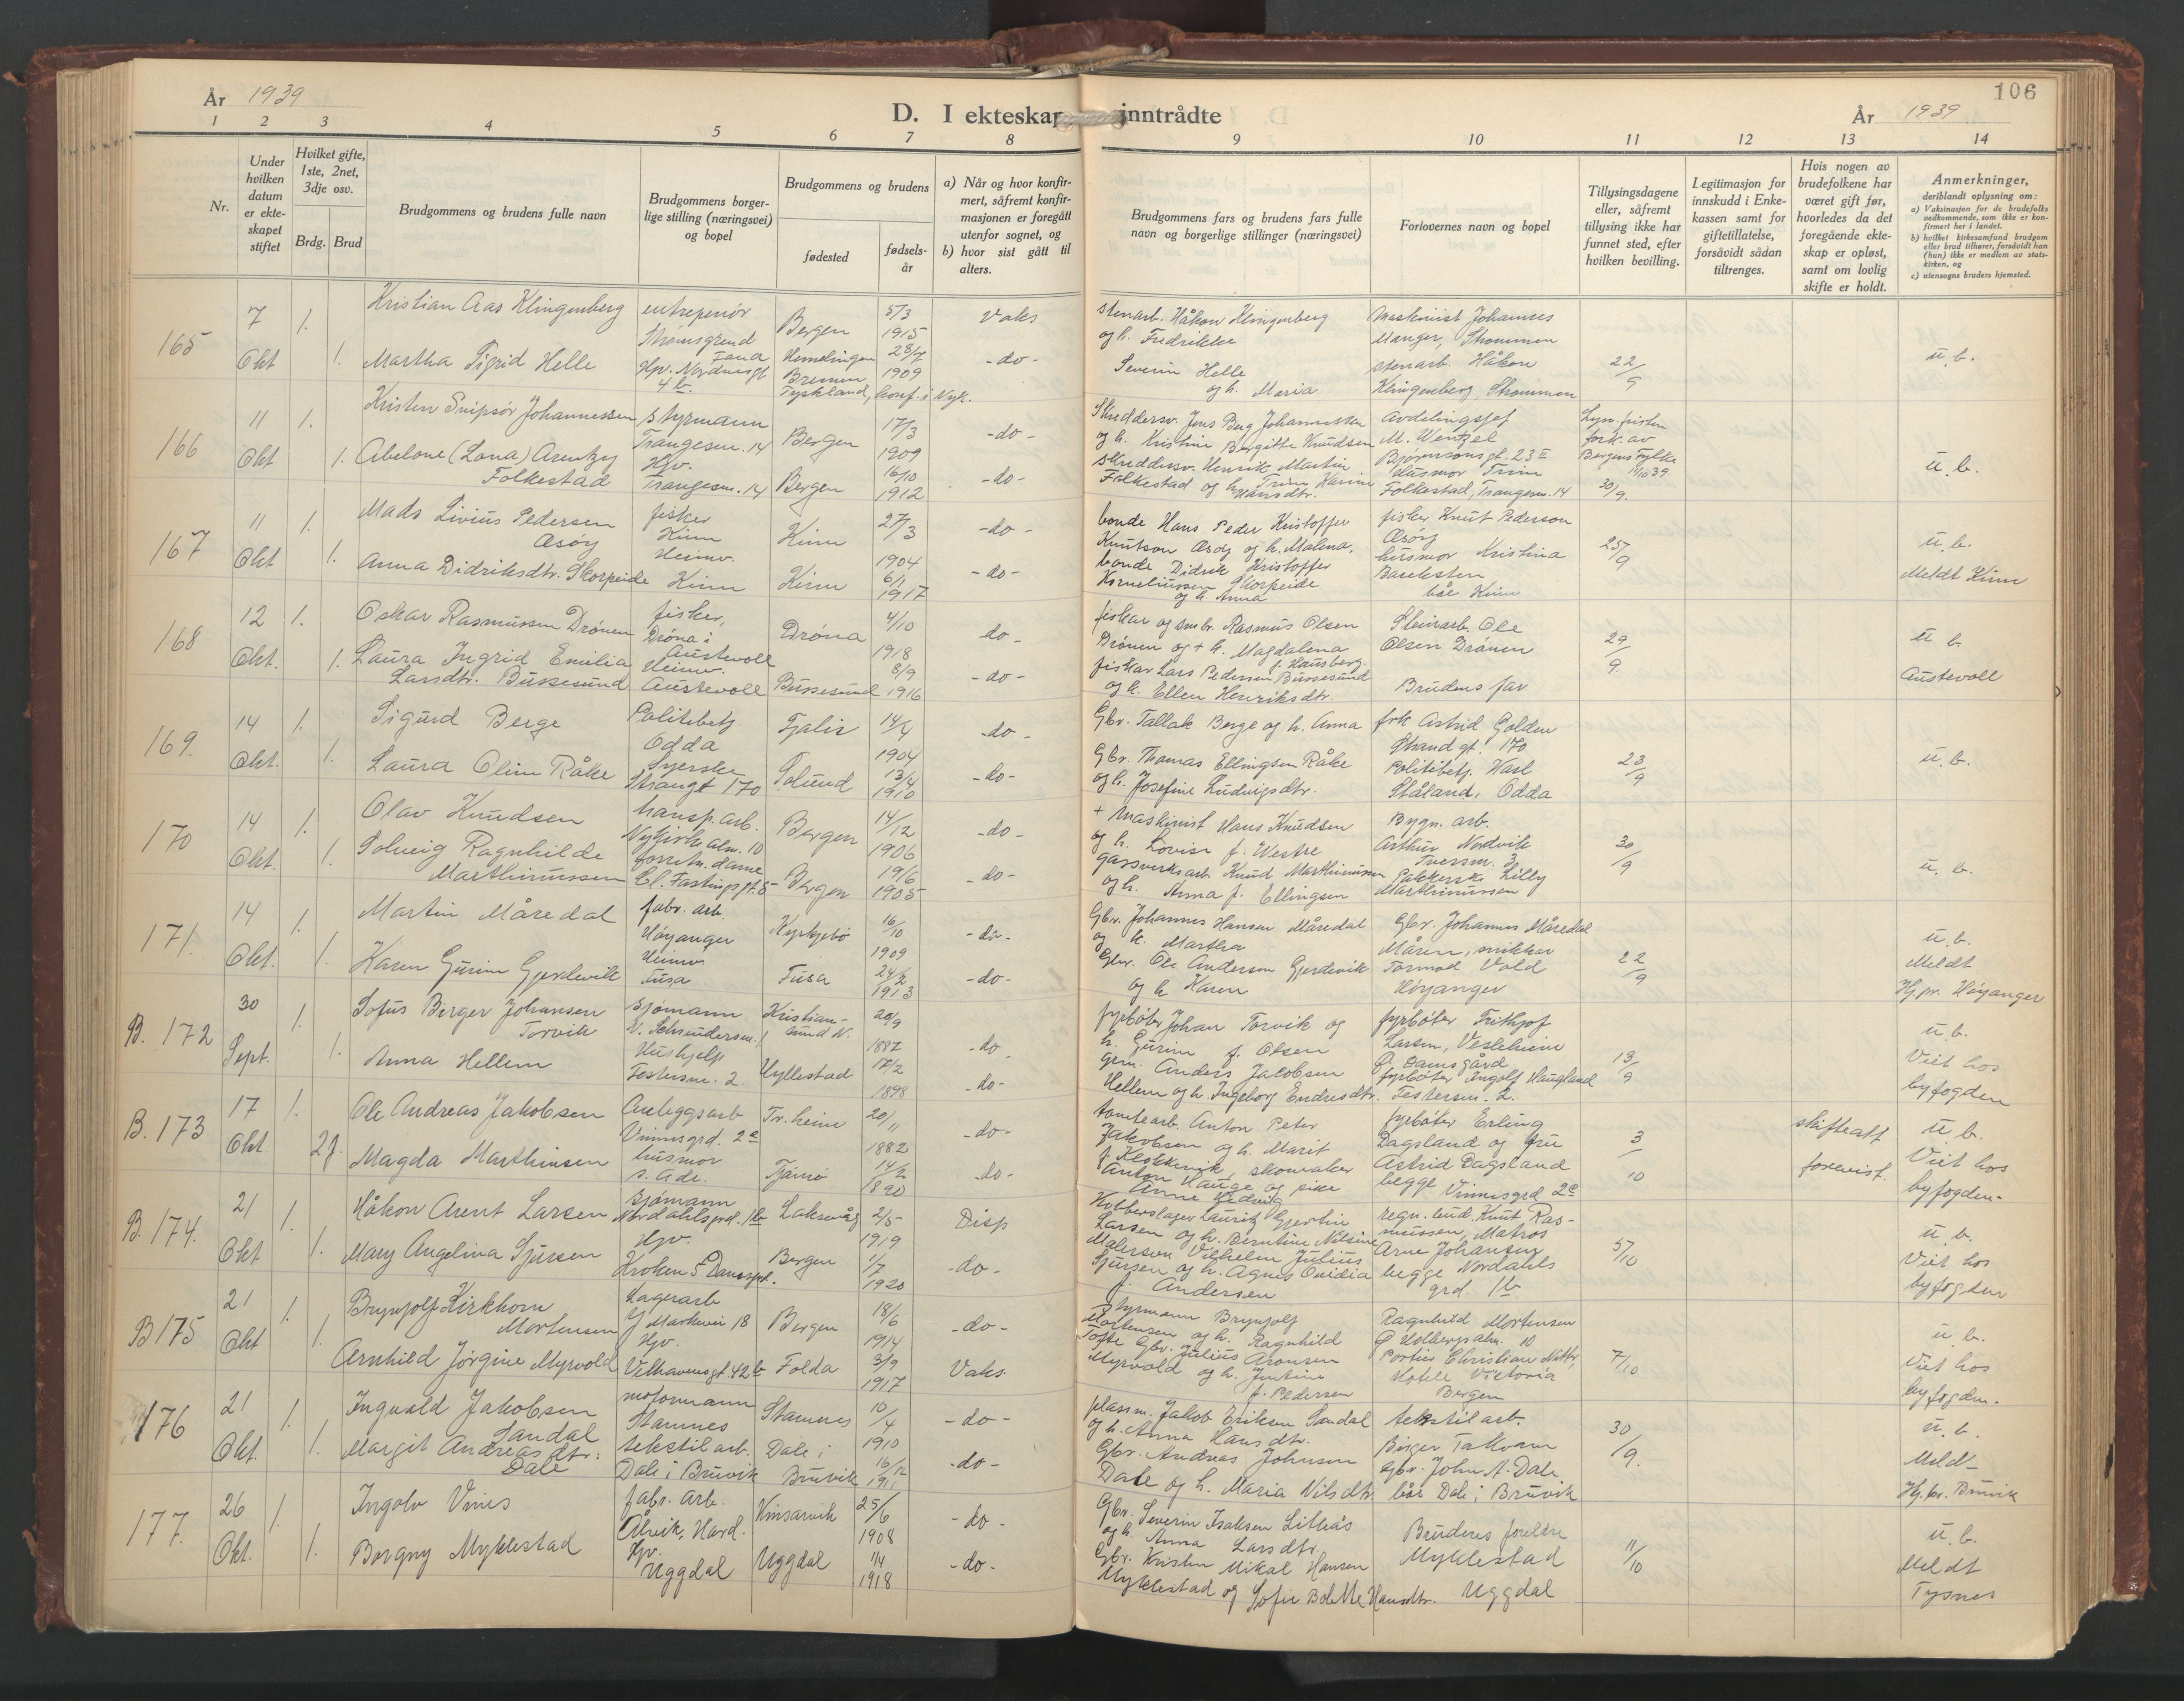 106
År 1939
D. I ekteskap inntrådte
År 1939
1 2 3 4 5 6 7 8 9 10 11 12 13 14
Nr.
Under hvilken datum er ekteskapet stiftet
Hvilket gifte, 1ste, 2net, 3dje osv.
Brdg. Brud
Brudgommens og brudens fulle navn
Brudgommens borgerlige stilling (næringsvei) og bopel
Brudgommens og brudens
fødested
fødselsår
a) Når og hvor konfirmert, såfremt konfirmasjonen er foregått utenfor sognet, og
b) hvor sist gått til alters.
Brudgommens fars og brudens fars fulle navn og borgerlige stillinger (næringsvei)
Forlovernes navn og bopel
Tillysingsdagene eller, såfremt tillysing ikke har funnet sted, efter hvilken bevilling.
Legitimasjon for innskudd i Enkekassen samt for giftetillatelse, forsåvidt sådan tiltrenges.
Hvis nogen av brudefolkene har været gift før, hvorledes da det foregående ekteskap er opløst, samt om lovlig skifte er holdt.
Anmerkninger,
deriblandt oplysning om:
a) Vaksinasjon for de brudefolks vedkommende, som ikke er konfirmert her i landet.
b) hvilket kirkesamfund brudgom eller brud tilhører, forsåvidt han (hun) ikke er medlem av statskirken, og
c) utensogns bruders hjemsted.
165
7 Okt
1. 1.
Kristian Aas Klingenberg
Martha Sigrid Helle
entrepenör
Fana
Hpv. Nordnesgt
4 b.
Bergen
Hemelingen
Bremen
Tyskland, konf. i Nyk.
5/3
1915
28/7
1909
Vaks
-do-
stenarb. Håkon Klingenberg
og h. Fredrikke
Severin Helle
og h. Maria
Maskinist Johannes
Manger, Strommen
stenarb. Håkon
Klingenberg, Strommen
22/9
u. b.
166
11 Okt
1. 1.
Kristen Snipsör Johannessen
Abelone (Lona) Arentzy
Folkestad
Styrmann
Trangesm. 14
Hjv.
Trangesm. 14
Bergen
Bergen
17/3
1909
16/10
1912
-do-
-do-
Skreddersv. Jens Berg Johannessen
og h. Kristine Bergitte Knudsen
skreddersv. Henrik Martin
Folkestad og h. Trine Karine
Hansdtr.
Avdelingssjef
M. Wentzel
Bjørnsonsgt. 23 II
Husmor Trine
Folkestad, Trangesm. 14
Lysn. fristen
fork. av
Bergens Fylke
30/9
u. b.
167
11 Okt
1. 1.
Mads Livius Pedersen
Åsöy
Anna Didriksdtr. Skorpeide
fisker
Kinn
Heimv.
Kinn
Kinn
Kinn
27/3
1904
6/1
1917
-do-
-do-
bonde Hans Peder Kristoffer
Knutson Åsöy og h. Malena.
bonde Didrik Kristoffer
Korneliussen Skorpeide
og h. Anna
fisker Knut Pederson
Åsöy
husmor Kristina
båe Kinn
25/9
u. b.
Meldt Kinn
168
12 Okt.
1. 1.
Oskar Rasmussen Drönen
Laura Ingrid Emilia
Larsdtr. Bussesund
fisker,
Dröna i
Austevoll
Heimv.
Austevoll
Dröna
Bussesund
4/10
1918
8/9
1916
do-
-do-
fiskar og smbr. Rasmus Olsen
Drönen og + h. Magdalena
f. Hansberg.
fiskar Lars Pedersen Bussesund
og h. Ellen Henriksdtr.
Steinarb. Ole
Olsen Drönen
Brudens far
29/9.
u. b.
Austevoll
169.
14 Okt.
1. 1.
Sigurd Berge
Laura Oline Råke
Politibetj.
Odda
Syerske
Strangt 170
Fjaler
Solund
14/4
1904
13/4
1910
-do-
-do-
Gbr. Tallak Berge og h. Anna
Gbr. Thomas Ellingsen Råke
og h. Josefine Ludvigsdtr.
frk Astrid Golden
Strandgt. 170
Politibetj. Karl
Ståland, Odda
23/9
u. b.
170
14 Okt.
1. 1.
Olav Knudsen
Solveig Ragnhilde
Marthinussen
transp. arb.
Nykirkealm. 10
forretn. dame
Cl. Fastingsgt. 5
Bergen
Bergen
14/12
1906
19/6
1905
-do-
-do-
+ Maskinist Hans Knudsen
og h. Lovise f. Westre
Gassverksarb. Knud Marthinussen
og h. Anna f. Ellingsen
Bygn. arb.
Arthur Nordvik
Tversm. 3
Pakkerske Lilly
Marthinussen
30/9
u. b.
171.
14 Okt.
1. 1.
Martin Måredal
Karen Gurine Gjerdevik
fabr. arb.
Høyanger
Heimv
Fusa
Kyrkjebø
Fusa
16/10
1909
24/2
1913
-do-
-do-
Gbr. Johannes Hansen Måredal
og h. Martha
Gbr. Ole Anderson Gjerdevik
og h Karen
Gbr. Johannes Måredal
Måren, snikkar
Tormod Vold
Høyanger
22/9
u. b.
Meldt
Kj.pr. Høyanger
B. 172
30 Sept.
1. 1.
Sofus Birger Johansen
Torvik
Anna Hellem
Sjømann
Hushjelp
Festersm. 2
Kristiansund N.
Hyllestad
20/9
1887
17/2
1898
-do-
-do-
fyrbøter Johan Torvik og
h. Gurine f. Olsen
grm. Anders Jacobsen
Hellem og h. Ingeborg Endresdtr.
fyrbøter Frithjof
Larsen, Vesleheim
G. Damsgård
fyrbøter Ingolf Haugland
Festersm. 2.
13/9
u. b.
Viet hos
byfogden
B. 173
17 Okt.
1. 2g.
Ole Andreas Jakobsen
Magda Marthinsen
Anleggsarb
Vinnesgrd. 2c
husmor
s. Adr.
Tr. heim
Tjømø
20/11
1882
14/2
1890
-do-
-do-
tomtearb. Anton Peter
Jakobsen og h. Marit
f. Klokkervik, skomaker
Anton Hauge og pike
Anne Hedvig
fyrbøter Erling
Dagsland og fru
Astrid Dagsland
begge Vinnesgrd 2c
3/10
skifteatt
forevist.
u. b.
Viet hos
byfogden-
B. 174.
21 Okt
1. 1.
Håkon Arent Larsen
Mary Angelina Sjursen
Sjømann
Nordahlsgrd. 1b
Hjv.
Kroken 5 Damsgd.
Laksevåg
Bergen
2/5
1919
1/7
1920
Disp
-do-
Kobberslager Lauritz Gjertin
Larsen og h. Berntine Nilsine
Malersv. Vilhelm Julius
Sjursen og h. Agnes Ovidia
f. Andersen
regn. bud. Knut Rasmussen, Matros
Arne Johansen
begge Nordahls
grd. 1b
5/10
u. b.
Viet hos
byfogden
B 175
21 Okt
1. 1.
Brynjolf Kirkhorn
Mortensen
Arnhild Jørgine Myrvold
Lagerarb
Y Markevei 18
Hjv.
Velhavensgt. 42b
Bergen
Folda
18/6
1914
3/9
1917
-do-
Vaks.
Styrmann Brynjolf
Mortensen og h. Ragnhild
Tofte Gbr. Julius Aronsen
Myrvold og h. Justine
f. Pedersen
Ragnhild Mortensen
Ø Holbergsalm. 10
Portier Christian Mittr
Hotell Victoria
Bergen
7/10
u. b.
Viet hos
byfogden.
176
21 Okt.
1. 1.
Ingvald Jakobsen
Sandal
Margit Andreasdtr:
Dale
motormann
Stamnes
tekstilarb.
Dale i Bruvik
Stamnes
Dale i
Bruvik
10/4
1910
16/12
1911
-do-
-do-
plassm. Jakob Eriksen Sandal
og h. Anna Hansdtr.
Gbr. Andreas Johnsen
Dale og h. Maria Nilsdtr.
tekstilarb.
Birger Takvam
Gbr. John A. Dale
båe Dale i Bruvik
30/9.
u. b.
Meld-
Kj.br. Bruvik
177.
26 Okt.
1. 1.
Ingolv Vines
Borgny Myklestad
fabr. arb.
Ålvik, Hard.
Hjv.
Uggdal
Kinsarvik
Uggdal
25/6
1908
1/4
1918
-do-
-do-
Gbr. Severin Isaksen Litleås
og h. Anna Larsdtr.
Gbr. Kristen Mikal Hansen
Myklestad og Sofie Bolette Hansdtr.
Brudens foreldre
Myklestad
Uggdal
11/10
u. b.
Meldt
Tysnes